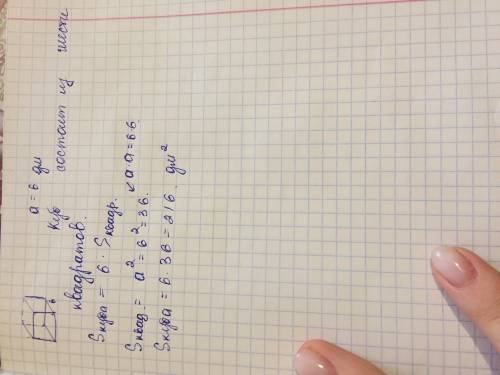 a = 6 дм
Куб состоит из шести
квадратов.
Sкуба = 6 · Sквадр.
Sквад = a² = 6² = 36. ∠ a·a = 6·6.
Sкуба = 6 · 36 = 216 дм²